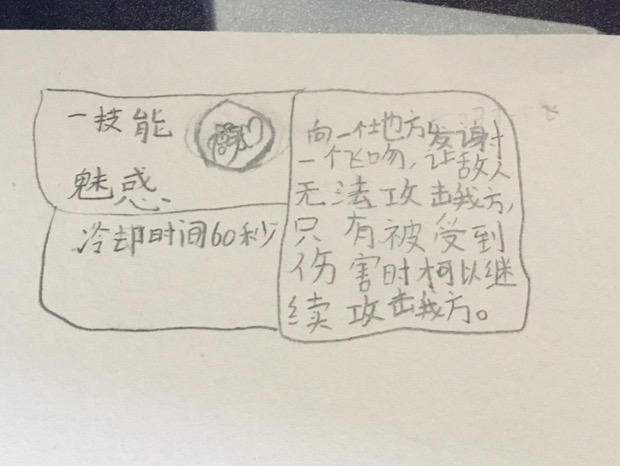 一技能
魅惑
冷却时间60秒
向一个地方发谢
一个飞吻，让敌人
无法攻击我方，
只有被受到
伤害时柯以继
续攻击我方。